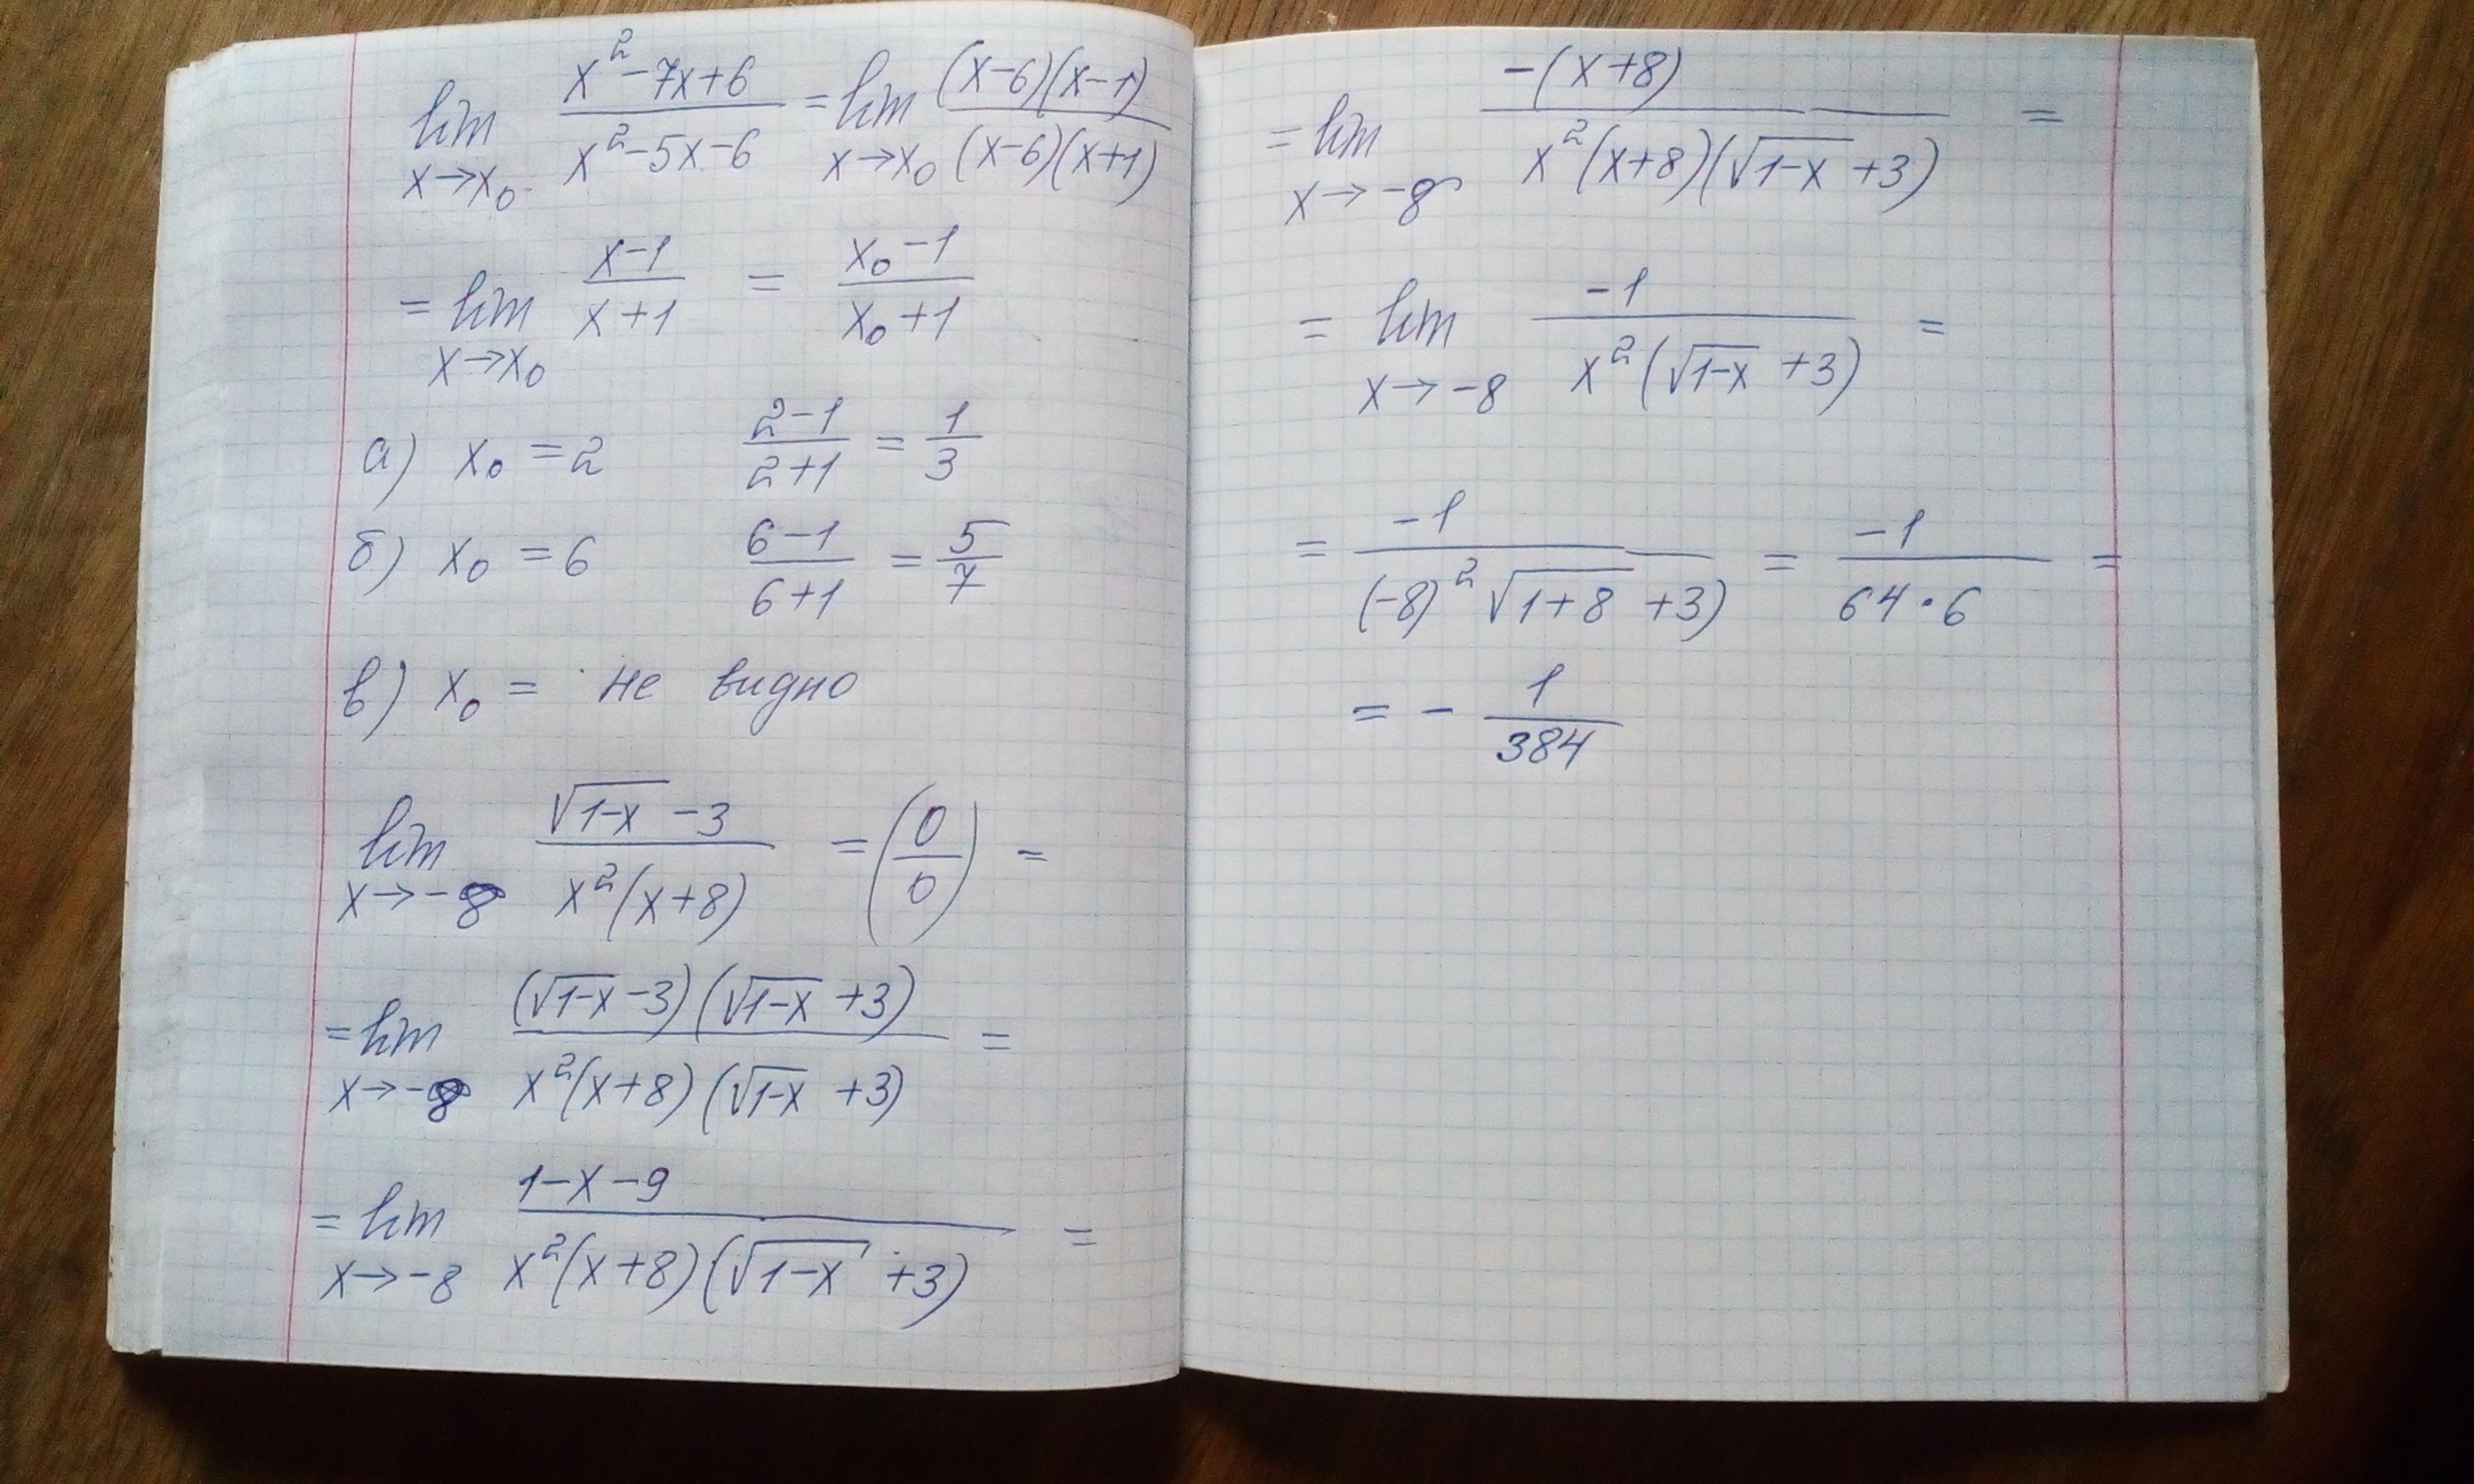 lim x→x₀ (x²-7x+6)/(x²-5x-6) = lim x→x₀ ((x-6)(x-1))/((x-6)(x+1))
= lim x→x₀ (x-1)/(x+1) = (x₀-1)/(x₀+1)
а) x₀ = 2 (2-1)/(2+1) = 1/3
б) x₀ = 6 (6-1)/(6+1) = 5/7
в) x₀ = не видно
lim x→-8 (√(1-x) -3)/(x²(x+8)) = (0/0) =
= lim x→-8 ((√(1-x) -3)(√(1-x) +3))/(x²(x+8)(√(1-x) +3)) =
= lim x→-8 (1-x-9)/(x²(x+8)(√(1-x) +3)) =
= lim x→-8 (-(x+8))/(x²(x+8)(√(1-x) +3)) =
= lim x→-8 (-1)/(x²(√(1-x) +3)) =
= (-1)/((-8)² √(1+8) +3)) = (-1)/(64·6) =
= - 1/384